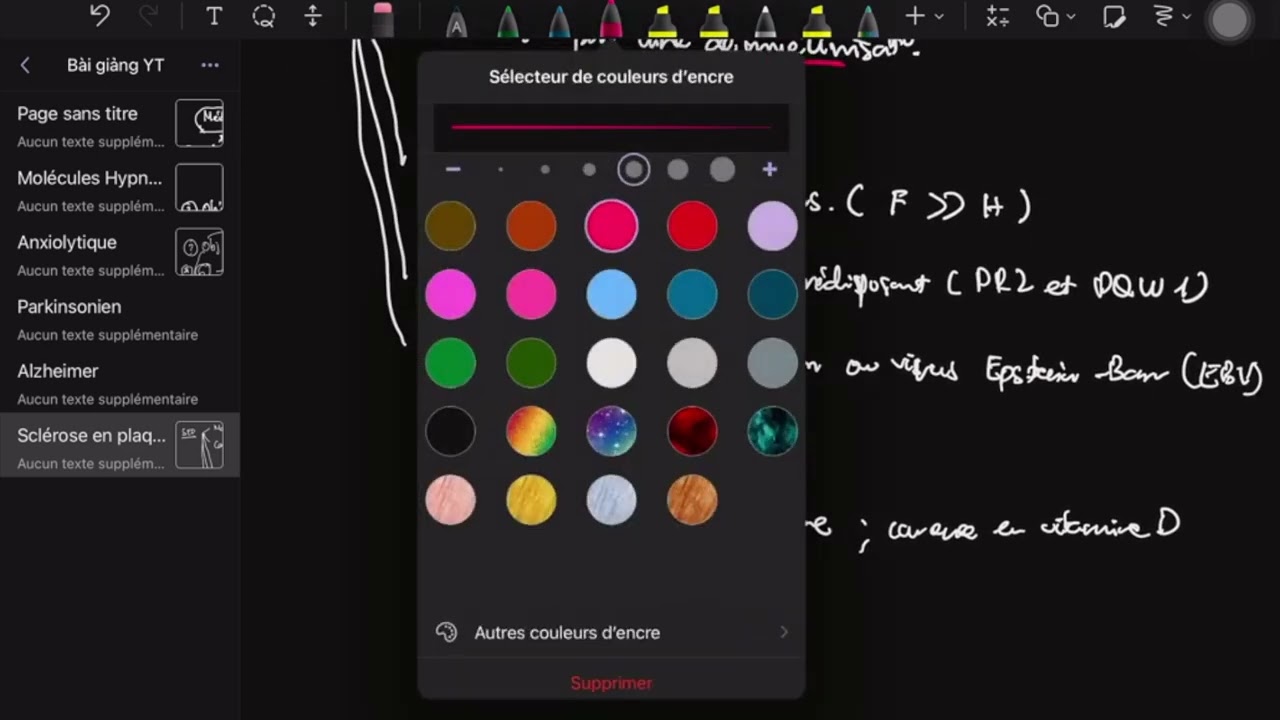 T
A
Bài giảng YT
Page sans titre
Aucun texte supplém...
Molécules Hypn...
Aucun texte supplém...
Anxiolytique
Aucun texte supplém...
Parkinsonien
Aucun texte supplémentaire
Alzheimer
Aucun texte supplémentaire
Sclérose en plaq...
Aucun texte supplém...
Sélecteur de couleurs d’encre
Autres couleurs d’encre
Supprimer
par une
s. ( F >> H )
rédisposant ( DR2 et DQW1 )
ou virus Epstein Barr (EBV)
; carence en vitamine D